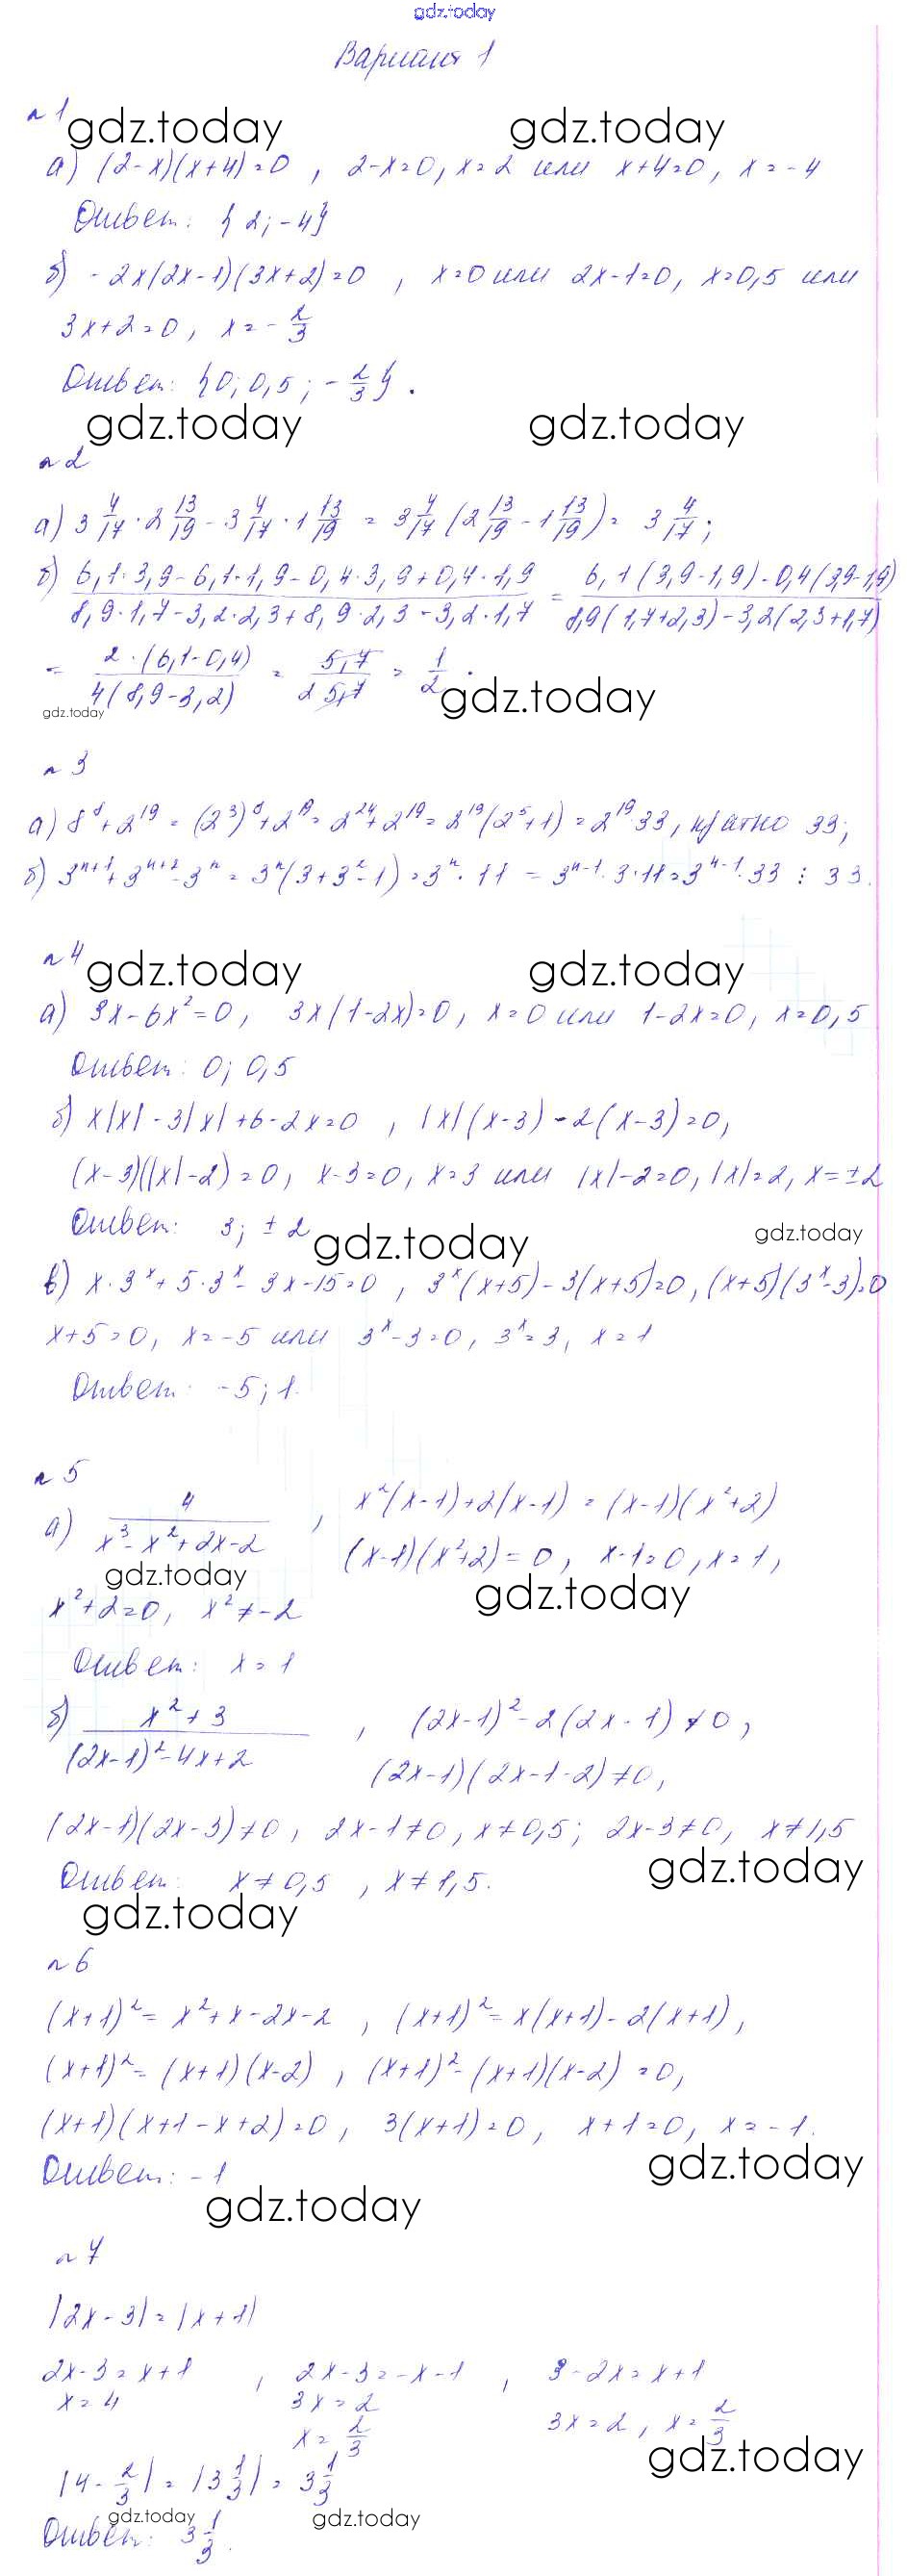 gdz.today
Вариант 1
№1
gdz.today gdz.today
а) (2-x)(x+4)=0 , 2-x=0, x=2 или x+4=0, x=-4
Ответ: {2; -4}
б) -2x(2x-1)(3x+2)=0 , x=0 или 2x-1=0, x=0,5 или
3x+2=0, x=-2/3
Ответ: {0; 0,5; -2/3}.
gdz.today gdz.today
№2
а) 3 4/17 · 2 13/19 - 3 4/17 · 1 13/19 = 3 4/17 (2 13/19 - 1 13/19) = 3 4/17;
б) (6,1·3,9-6,1·1,9-0,4·3,9+0,4·1,9)/(8,9·1,7-3,2·2,3+8,9·2,3-3,2·1,7) = (6,1(3,9-1,9)-0,4(3,9-1,9))/(8,9(1,7+2,3)-3,2(2,3+1,7))
= (2·(6,1-0,4))/(4(8,9-3,2)) = 5,7/(2 5,7) = 1/2.
gdz.today gdz.today
№3
а) 8⁸+2¹⁹=(2³)⁸+2¹⁹=2²⁴+2¹⁹=2¹⁹(2⁵+1)=2¹⁹·33, кратно 33;
б) 3ⁿ⁺¹+3ⁿ⁺²-3ⁿ=3ⁿ(3+3²-1)=3ⁿ·11=3ⁿ⁻¹·3·11=3ⁿ⁻¹·33 ⋮ 33.
№4
gdz.today gdz.today
а) 3x-6x²=0, 3x(1-2x)=0, x=0 или 1-2x=0, x=0,5
Ответ: 0; 0,5
б) x|x|-3|x|+6-2x=0 , |x|(x-3)-2(x-3)=0,
(x-3)(|x|-2)=0, x-3=0, x=3 или |x|-2=0, |x|=2, x=±2
Ответ: 3; ±2
gdz.today gdz.today
в) x·3ˣ+5·3ˣ-3x-15=0 , 3ˣ(x+5)-3(x+5)=0, (x+5)(3ˣ-3)=0
x+5=0, x=-5 или 3ˣ-3=0, 3ˣ=3, x=1
Ответ: -5; 1.
№5
а) 4/(x³-x²+2x-2) , x²(x-1)+2(x-1)=(x-1)(x²+2)
(x-1)(x²+2)=0, x-1=0, x=1,
gdz.today gdz.today
x²+2=0, x²≠-2
Ответ: x=1
б) (x²+3)/((2x-1)²-4x+2) , (2x-1)²-2(2x-1)≠0,
(2x-1)(2x-1-2)≠0,
(2x-1)(2x-3)≠0, 2x-1≠0, x≠0,5; 2x-3≠0, x≠1,5
gdz.today
Ответ: x≠0,5 , x≠1,5.
gdz.today
№6
(x+1)²=x²+x-2x-2 , (x+1)²=x(x+1)-2(x+1),
(x+1)²=(x+1)(x-2) , (x+1)²-(x+1)(x-2)=0,
(x+1)(x+1-x+2)=0, 3(x+1)=0, x+1=0, x=-1.
Ответ: -1
gdz.today
gdz.today
№7
|2x-3|=|x+1|
2x-3=x+1 , 2x-3=-x-1 , 3-2x=x+1
x=4 3x=2 3x=2, x=2/3
x=2/3
gdz.today
|4-2/3|=|3 1/3|=3 1/3
gdz.today gdz.today
Ответ: 3 1/3.